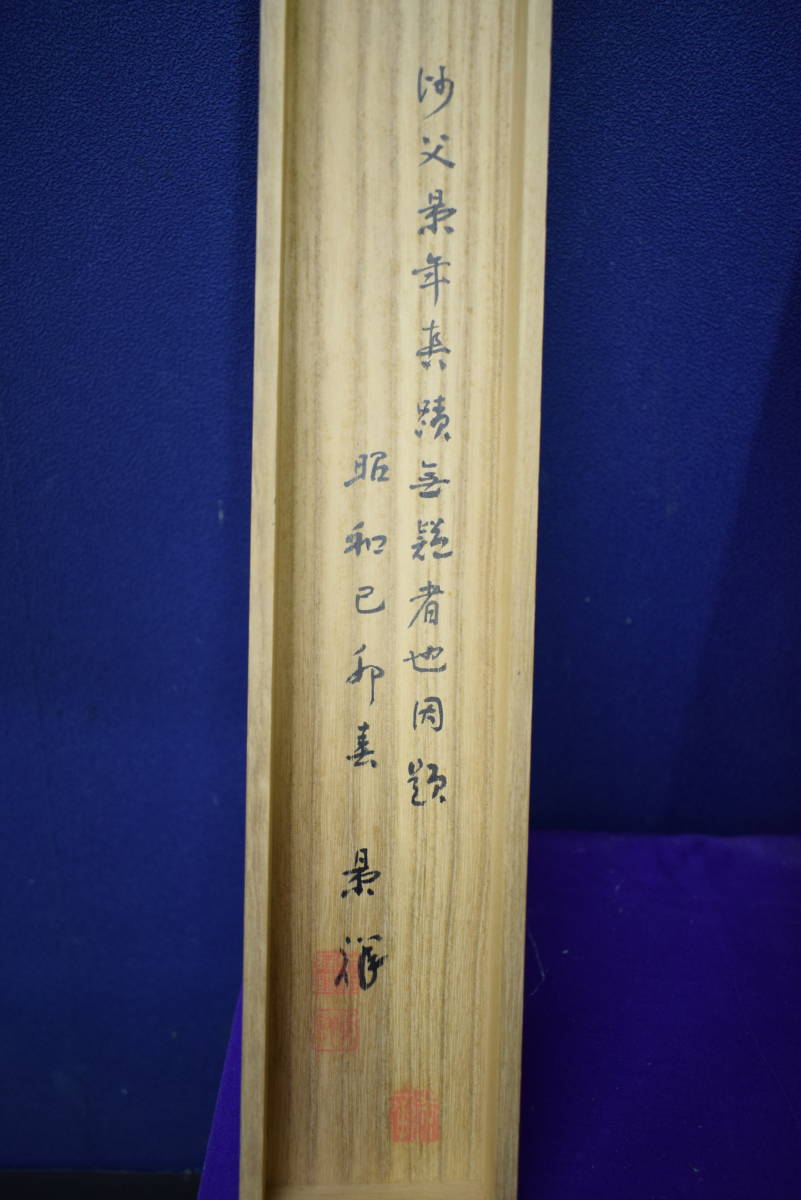 師父景年真蹟無疑者也因題
昭和己卯春 景祥